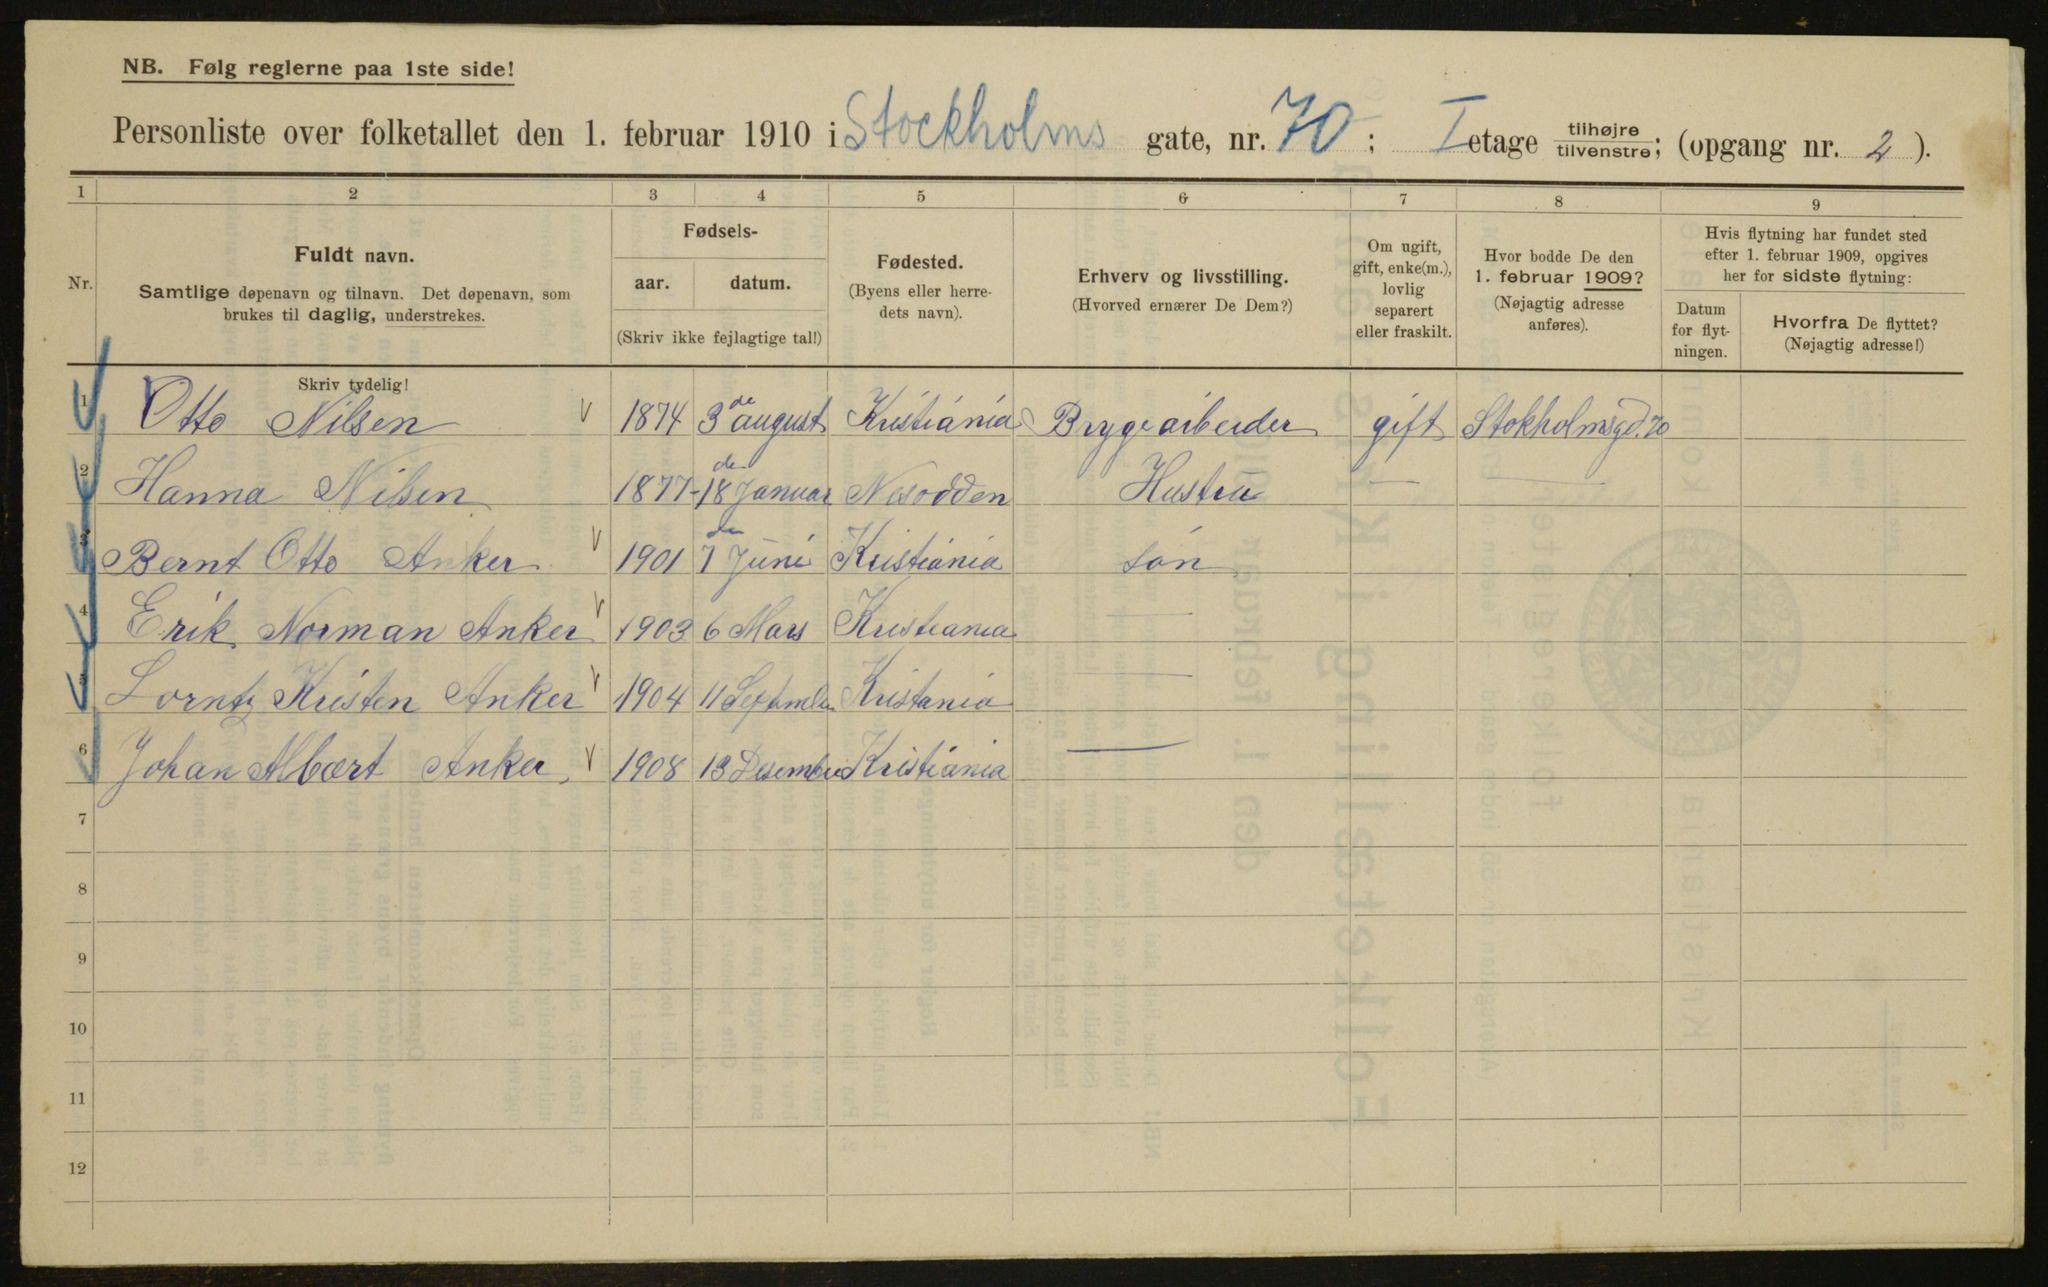 NB. Følg reglerne paa 1ste side!
Personliste over folketallet den 1. februar 1910 i Stockholms gate, nr. 70; I etage tilhøjre/tilvenstre; (opgang nr. 2).
1 2 3 4 5 6 7 8 9
Nr.
Fuldt navn.
Samtlige døpenavn og tilnavn. Det døpenavn, som
brukes til daglig, understrekes.
Skriv tydelig!
Fødsels-
aar. datum.
(Skriv ikke fejlagtige tal!)
Fødested.
(Byens eller herre-
dets navn).
Erhverv og livsstilling.
(Hvorved ernærer De Dem?)
Om ugift,
gift, enke(m.),
lovlig
separert
eller fraskilt.
Hvor bodde De den
1. februar 1909?
(Nøjagtig adresse
anføres).
Hvis flytning har fundet sted
efter 1. februar 1909, opgives
her for sidste flytning:
Datum
for flyt-
ningen.
Hvorfra De flyttet?
(Nøjagtig adresse!)
1 Otto Nilsen v 1874 3de august Kristiánia Brygearbeider gift Stokholmsgd. 70
2 Hanna Nilsen 1877 - 18de Januar Nesodden Hustru — —
3 Bernt Otto Anker v 1901 7de Juni Kristiánia són
4 Erik Norman Anker v 1903 6 Mars Kristiania —
5 Lorntz Kristen Anker v 1904 11 Septmber Kristania —
6 Johan Albert Anker v 1908 13 Desember Kristiánia —
7
8
9
10
11
12